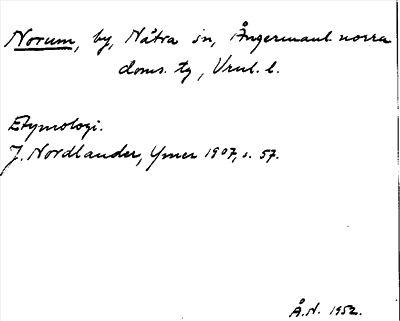 Norum, by, Nätra sn, Ångermanl. norra
doms. tg, Vnl. l.
Etymologi.
J. Nordlander, Ymer 1907, s. 57.
Å.N. 1952.